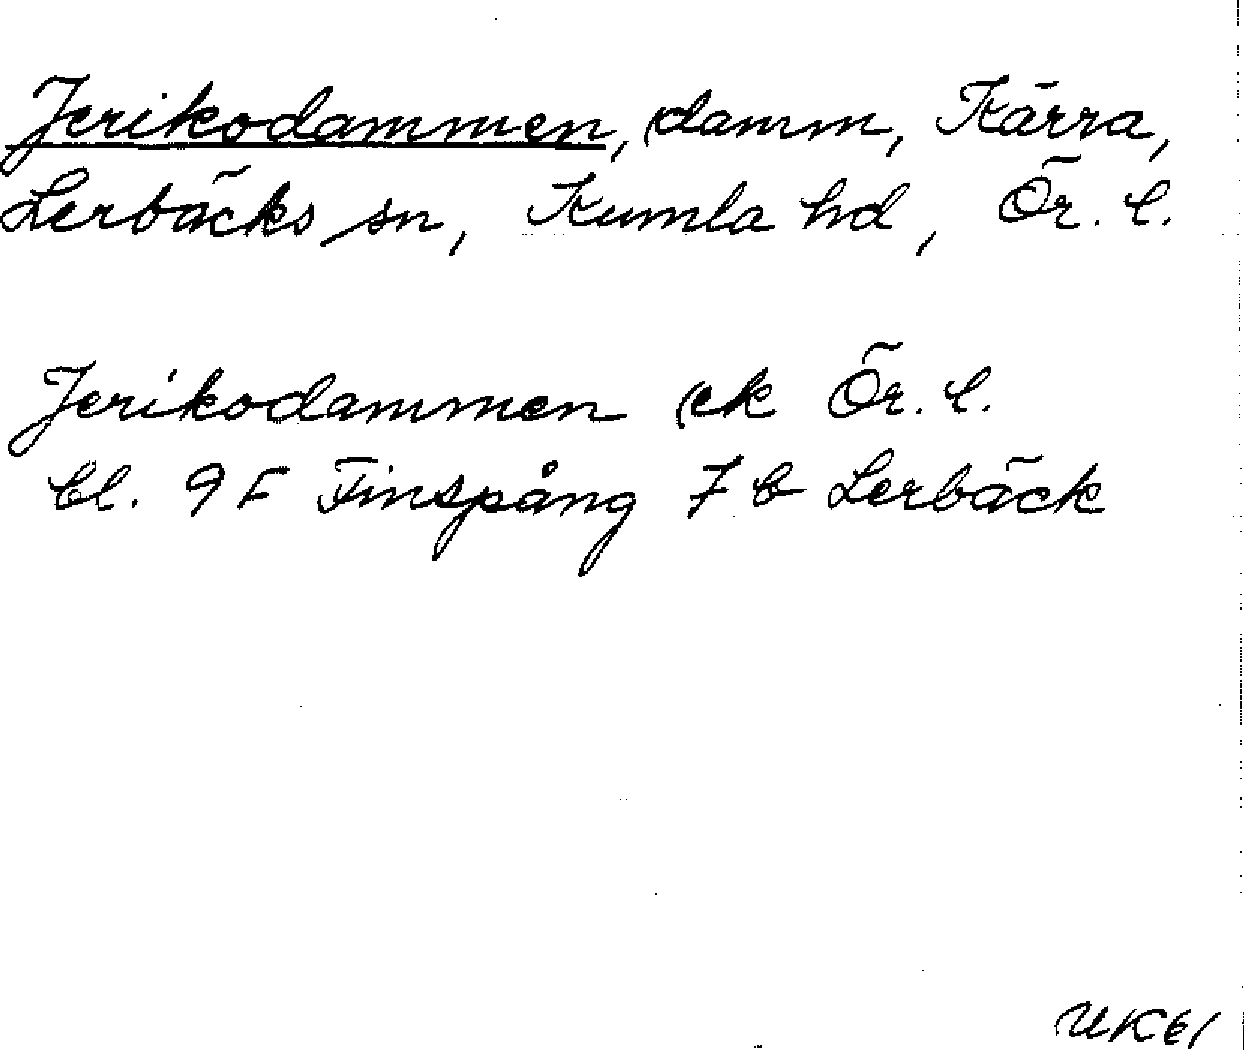 Jerikodammen, damm, Kärra,
Lerbäcks sn, Kumla hd, Ör. l.
Jerikodammen ek Ör. l.
bl. 9 F Finspång 7 b Lerbäck